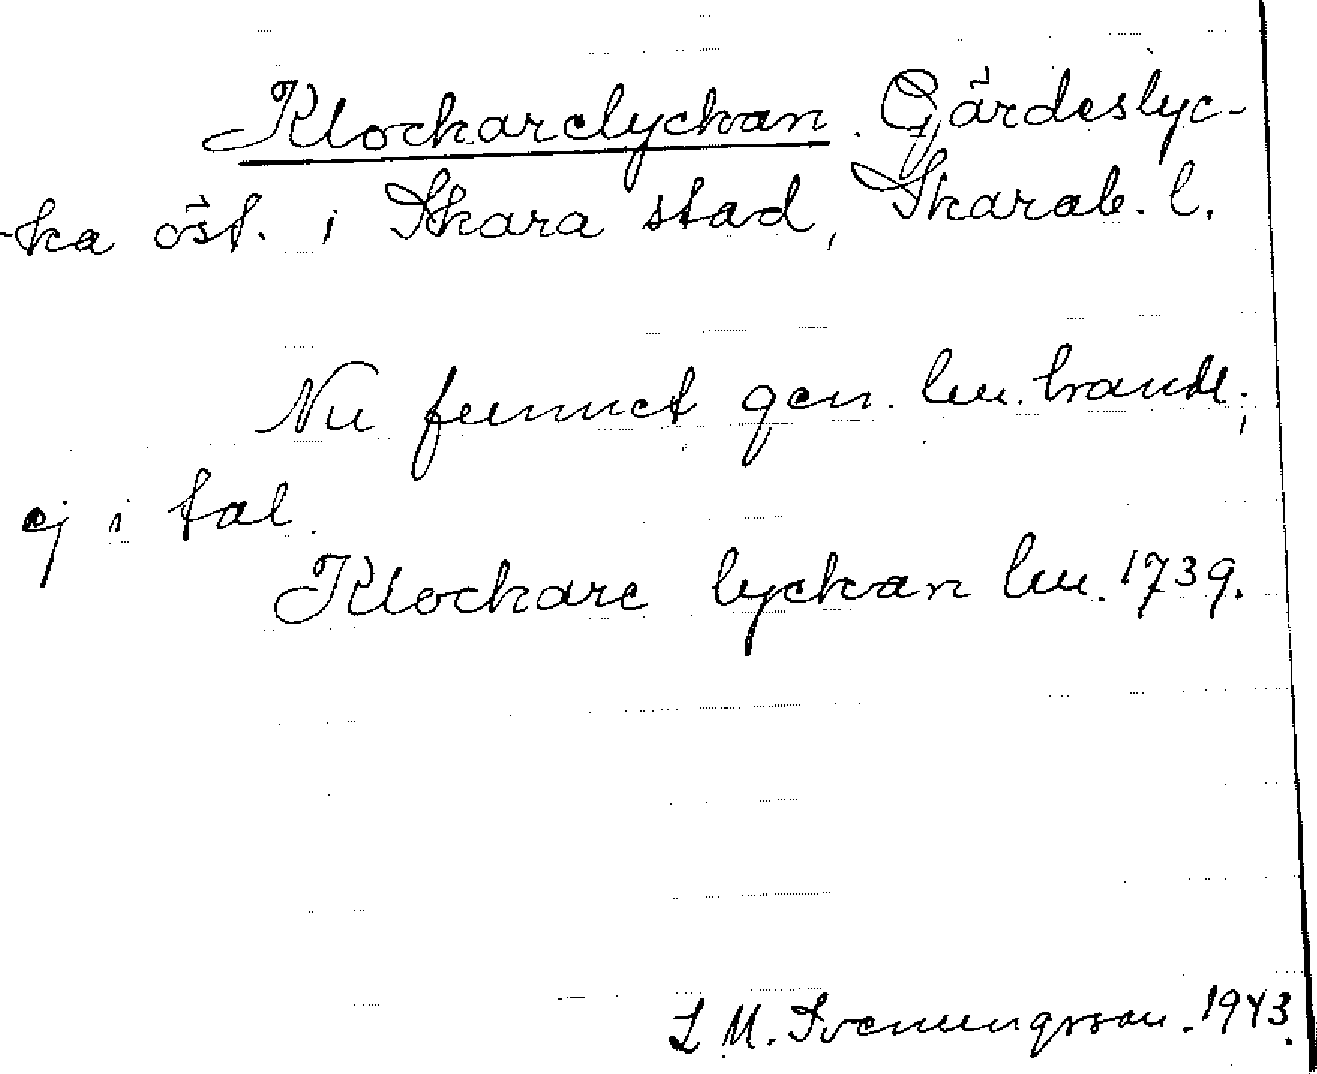 Klockarelyckan. Gärdeslyc-
-ka öst. i Skara stad, Skarab. l.
Nu funnet gen. lm. handl.;
ej i tal.
Klockare lyckan lm. 1739.
L M. Svenungsson. 1943.